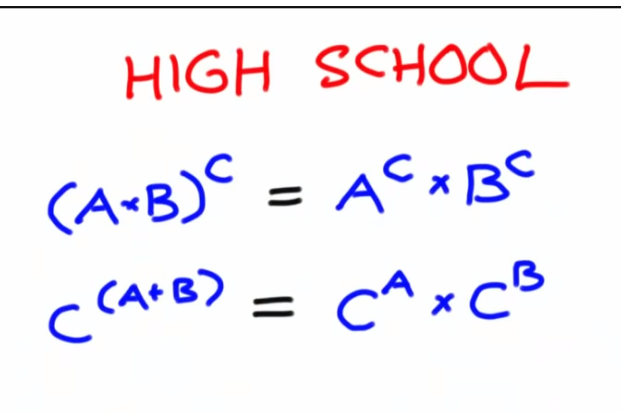 HIGH SCHOOL
(A×B)^C = A^C × B^C
C^(A+B) = C^A × C^B